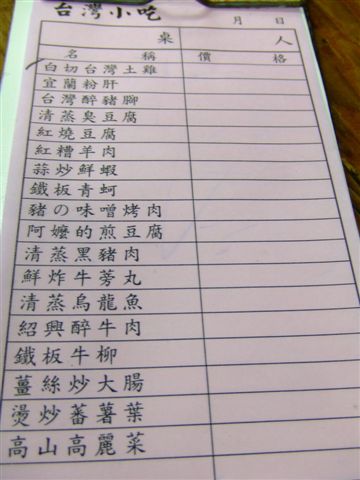 台灣小吃
月 日
桌 人
名 稱 價 格
白切台灣土雞
宜蘭粉肝
台灣醉豬腳
清蒸臭豆腐
紅燒豆腐
紅糟羊肉
蒜炒鮮蝦
鐵板青蚵
豬の味噌烤肉
阿嬤的煎豆腐
清蒸黑豬肉
鮮炸牛蒡丸
清蒸烏龍魚
紹興醉牛肉
鐵板牛柳
薑絲炒大腸
燙炒蕃薯葉
高山高麗菜